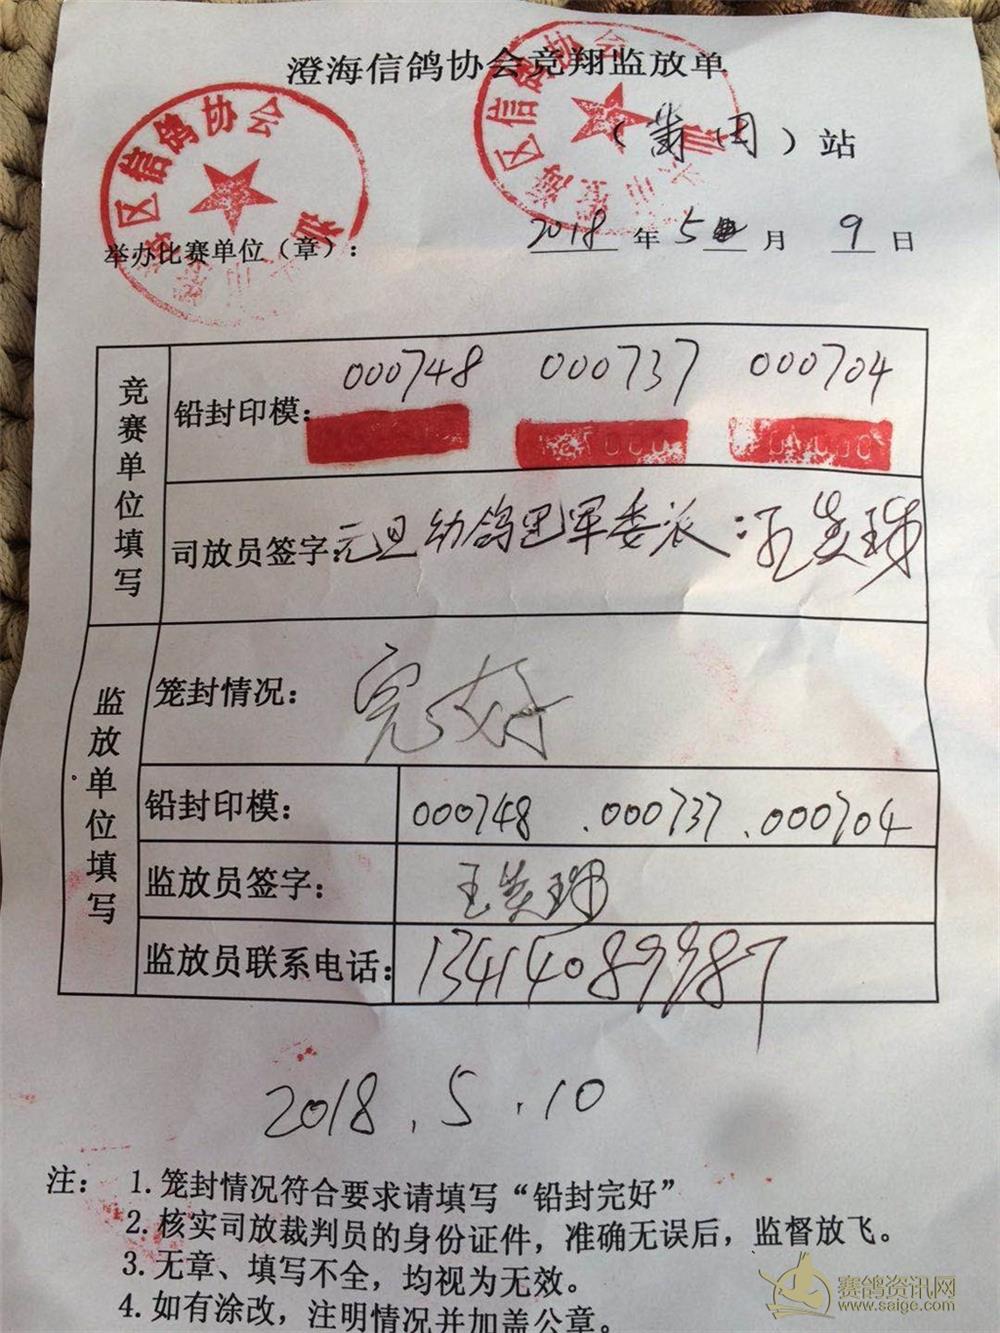 澄海信鸽协会竞翔监放单
（莆田）站
区信鸽协会
区信鸽协会
举办比赛单位（章）：
2018年5月9日
竞赛单位填写
铅封印模：
000748 000737 000704
司放员签字：元旦幼鸽团军委派：
监放单位填写
笼封情况：完好
铅封印模：
000748 .000737 .000704
监放员签字：
监放员联系电话：13414089987
2018.5.10
注：
1.笼封情况符合要求请填写“铅封完好”
2.核实司放裁判员的身份证件，准确无误后，监督放飞。
3.无章、填写不全，均视为无效。
4.如有涂改，注明情况并加盖公章。
赛鸽资讯网
www.saige.com